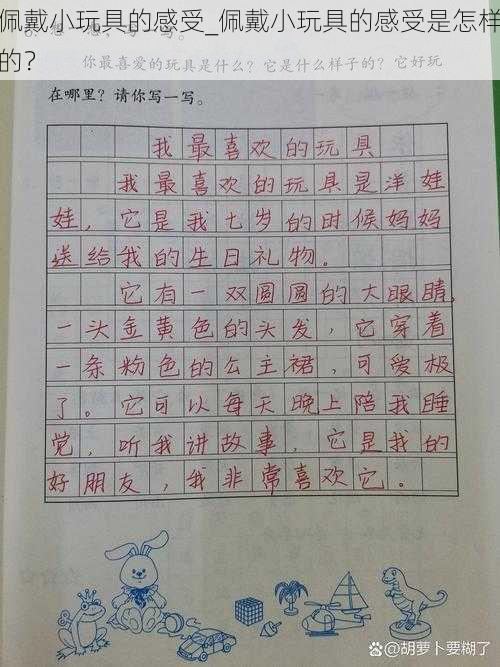 佩戴小玩具的感受_佩戴小玩具的感受是怎样
的？
你最喜爱的玩具是什么？它是什么样子的？它好玩
在哪里？请你写一写。
我最喜欢的玩具
我最喜欢的玩具是洋娃
娃，它是我七岁的时候妈妈
送给我的生日礼物。
它有一双圆圆的大眼睛，
一头金黄色的头发，它穿着
一条粉色的公主裙，可爱极
了。它可以每天晚上陪我睡
觉，听我讲故事，它是我的
好朋友，我非常喜欢它。
@胡萝卜要糊了